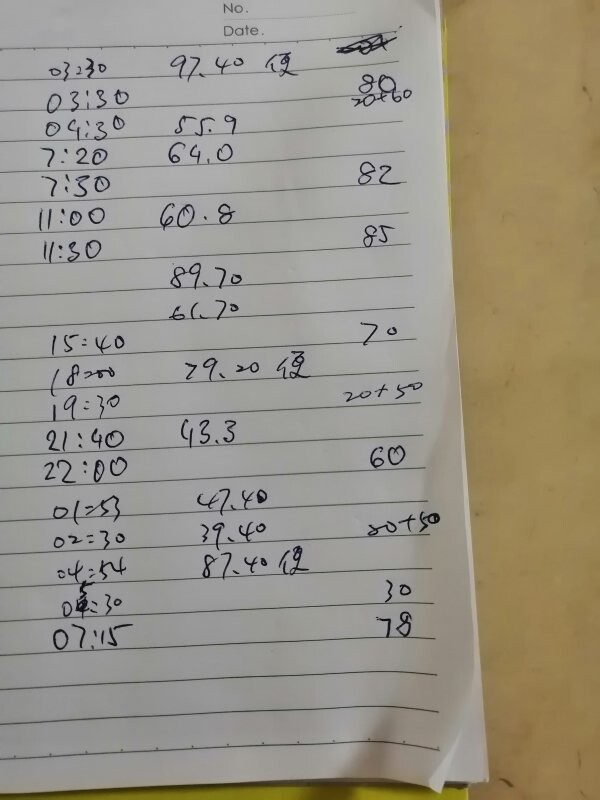 No.
Date.
03:30 97.40 便
03:30 80
20+60
04:30 55.9
7:20 64.0
7:30 82
11:00 60.8
11:30 85
89.70
61.70
15:40 70
18:00 79.20 便
19:30 20+50
21:40 43.3
22:00 60
01:53 47.40
02:30 39.40 80+50
04:54 87.40 便
05:30 30
07:15 78